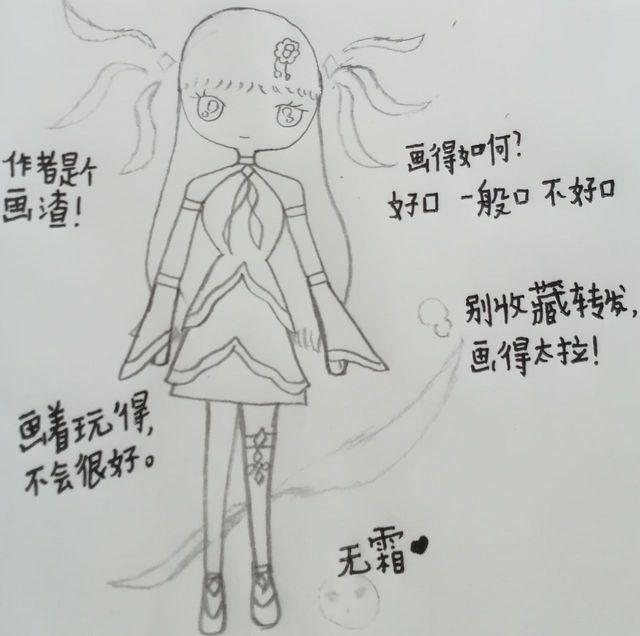 作者是个
画渣！
画得如何？
好口 一般口 不好口
别收藏转发，
画得太拉！
画着玩得，
不会很好。
无霜